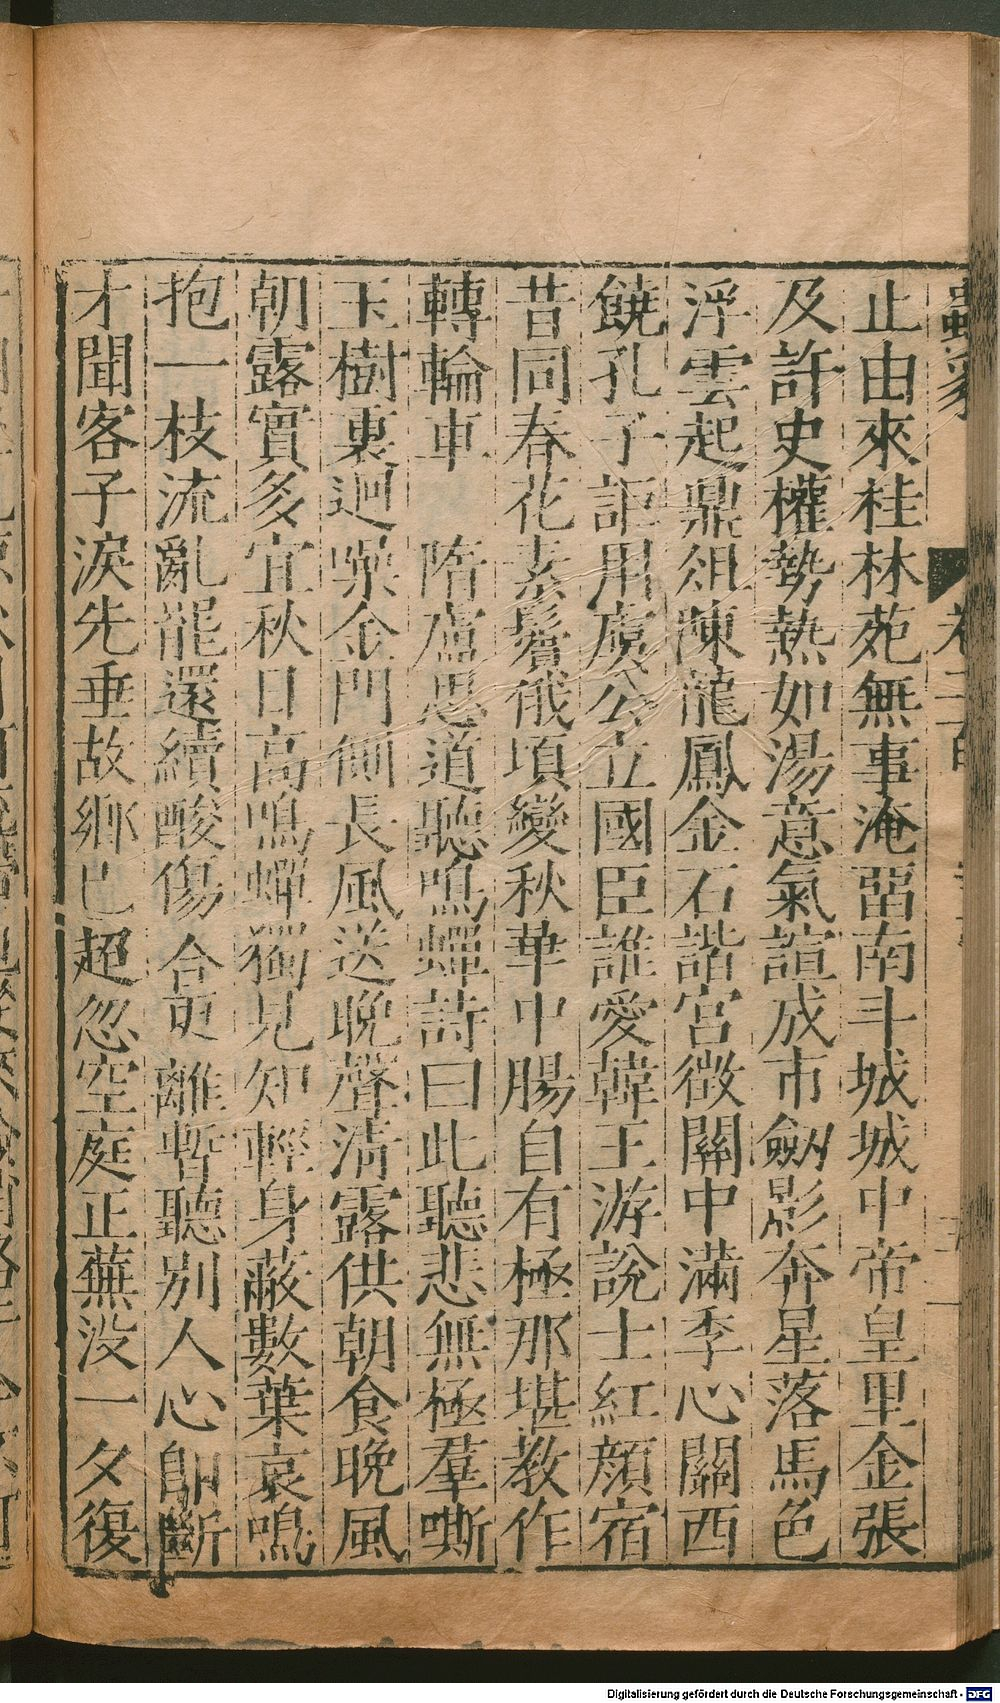 止由來桂林苑無事淹留南斗城城中帝皇里金張
及許史權勢熱如湯意氣諠成市劒影奔星落馬色
浮雲起鼎俎陳龍鳳金石諧宮徵關中滿季心關西
饒孔子詎用虞公立國臣誰愛韓王游說士紅顏宿
昔同春花素鬢俄頃變秋華中腸自有極那堪教作
轉輪車　隋盧思道聽鳴蟬詩曰此聽悲無極羣嘶
玉樹裏迥噪金門側長風送晚聲清露供朝食晚風
朝露實多宜秋日高鳴蟬獨見知輕身蔽數葉哀鳴
抱一枝流亂罷還續酸傷合更離暫聽別人心卽斷
才聞客子淚先垂故鄉已超忽空庭正蕪没一夕復
Digitalisierung gefördert durch die Deutsche Forschungsgemeinschaft - DFG